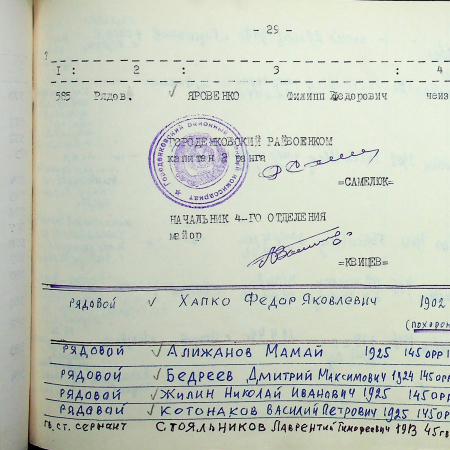 - 29 -
1 : 2 : 3 : 4
585 Рядов. ✓ ЯРОВЕНКО Филипп Федорович неиз
ГОРОДЕНКОВСКИЙ РАЙВОЕНКОМ
капитан 3 ранга
=САМЕЛЮК=
НАЧАЛЬНИК 4-ГО ОТДЕЛЕНИЯ
майор
=КВИЦЕВ=
РЯДОВОЙ ✓ ХАПКО ФЕДОР ЯКОВЛЕВИЧ 1902
(похорон
РЯДОВОЙ ✓ АЛИЖАНОВ МАМАЙ 1925 145 ОРР
РЯДОВОЙ ✓ БЕДРЕЕВ ДМИТРИЙ МАКСИМОВИЧ 1924 145 ОРР
РЯДОВОЙ ✓ ЖИЛИН НИКОЛАЙ ИВАНОВИЧ 1925 145 ОРР
РЯДОВОЙ ✓ КОТОНАКОВ ВАСИЛИЙ ПЕТРОВИЧ 1925 145 ОР
ГВ. СТ. СЕРЖАНТ СТОЯЛЬНИКОВ ЛАВРЕНТИЙ ТИМОФЕЕВИЧ 1913 45 ГВ